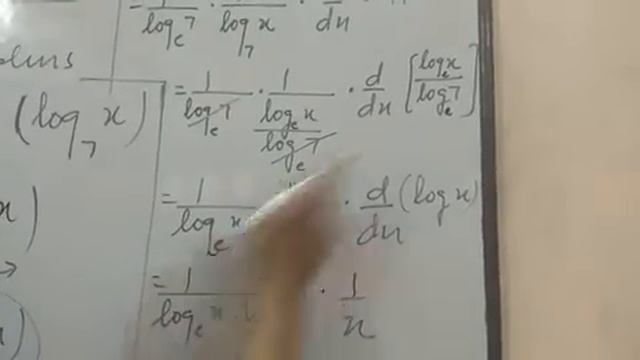 = 1/log_e 7 · 1/log_7 x · d/dx
(log_7 x)
= 1/log_e 7 · 1/(log_e x/log_e 7) · d/dx [log_e x/log_e 7]
= 1/log_e x · d/dx (log x)
x)
= 1/log_e x · 1/x